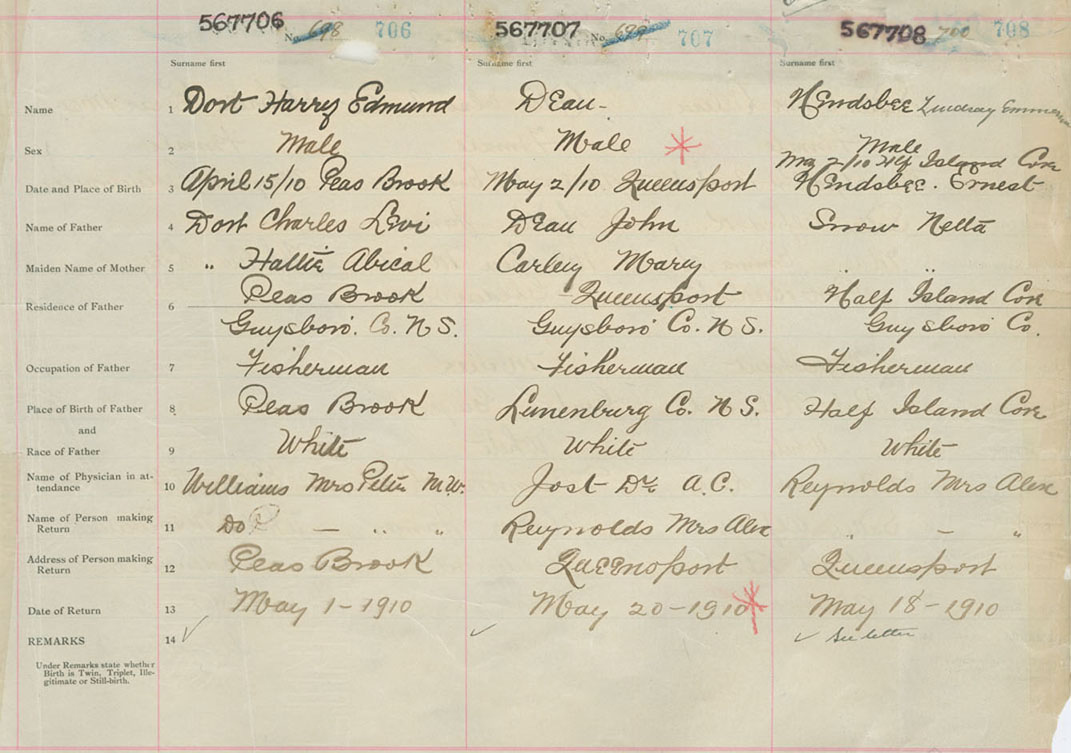 567706 No. 698 706 567707 No. 699 707 567708 700 708
Surname first Surname first Surname first
Name 1 Dort Harry Edmund DEau - HEndsbee Lindsay Emmerson
Sex 2 Male Male Male
May 2/10 Hlf Island Cove
Date and Place of Birth 3 April 15/10 Peas Brook May 2/10 Queensport HEndsbee. Ernest
Name of Father 4 Dort Charles Levi DEau John Snow Netta
Maiden Name of Mother 5 " Hattie Abical Carley Mary " "
Residence of Father 6 Peas Brook Queensport Half Island Cove
Guysboro'. Co. N S. Guysboro' Co. N S. Guysboro' Co.
Occupation of Father 7 Fisherman Fisherman Fisherman
Place of Birth of Father 8 Peas Brook Lunenburg Co. N S. Half Island Cove
and
Race of Father 9 White White White
Name of Physician in at-
tendance 10 Williams Mrs Peter M.W. Jost Dr. A.C. Reynolds Mrs Alex
Name of Person making
Return 11 Do — " " Reynolds Mrs Alex " — "
Address of Person making
Return 12 Peas Brook Queensport Queensport
Date of Return 13 May 1 - 1910 May 20 - 1910 May 18 - 1910
REMARKS 14 ✓ ✓ ✓ See letter
Under Remarks state whether
Birth is Twin, Triplet, Ille-
gitimate or Still-birth.